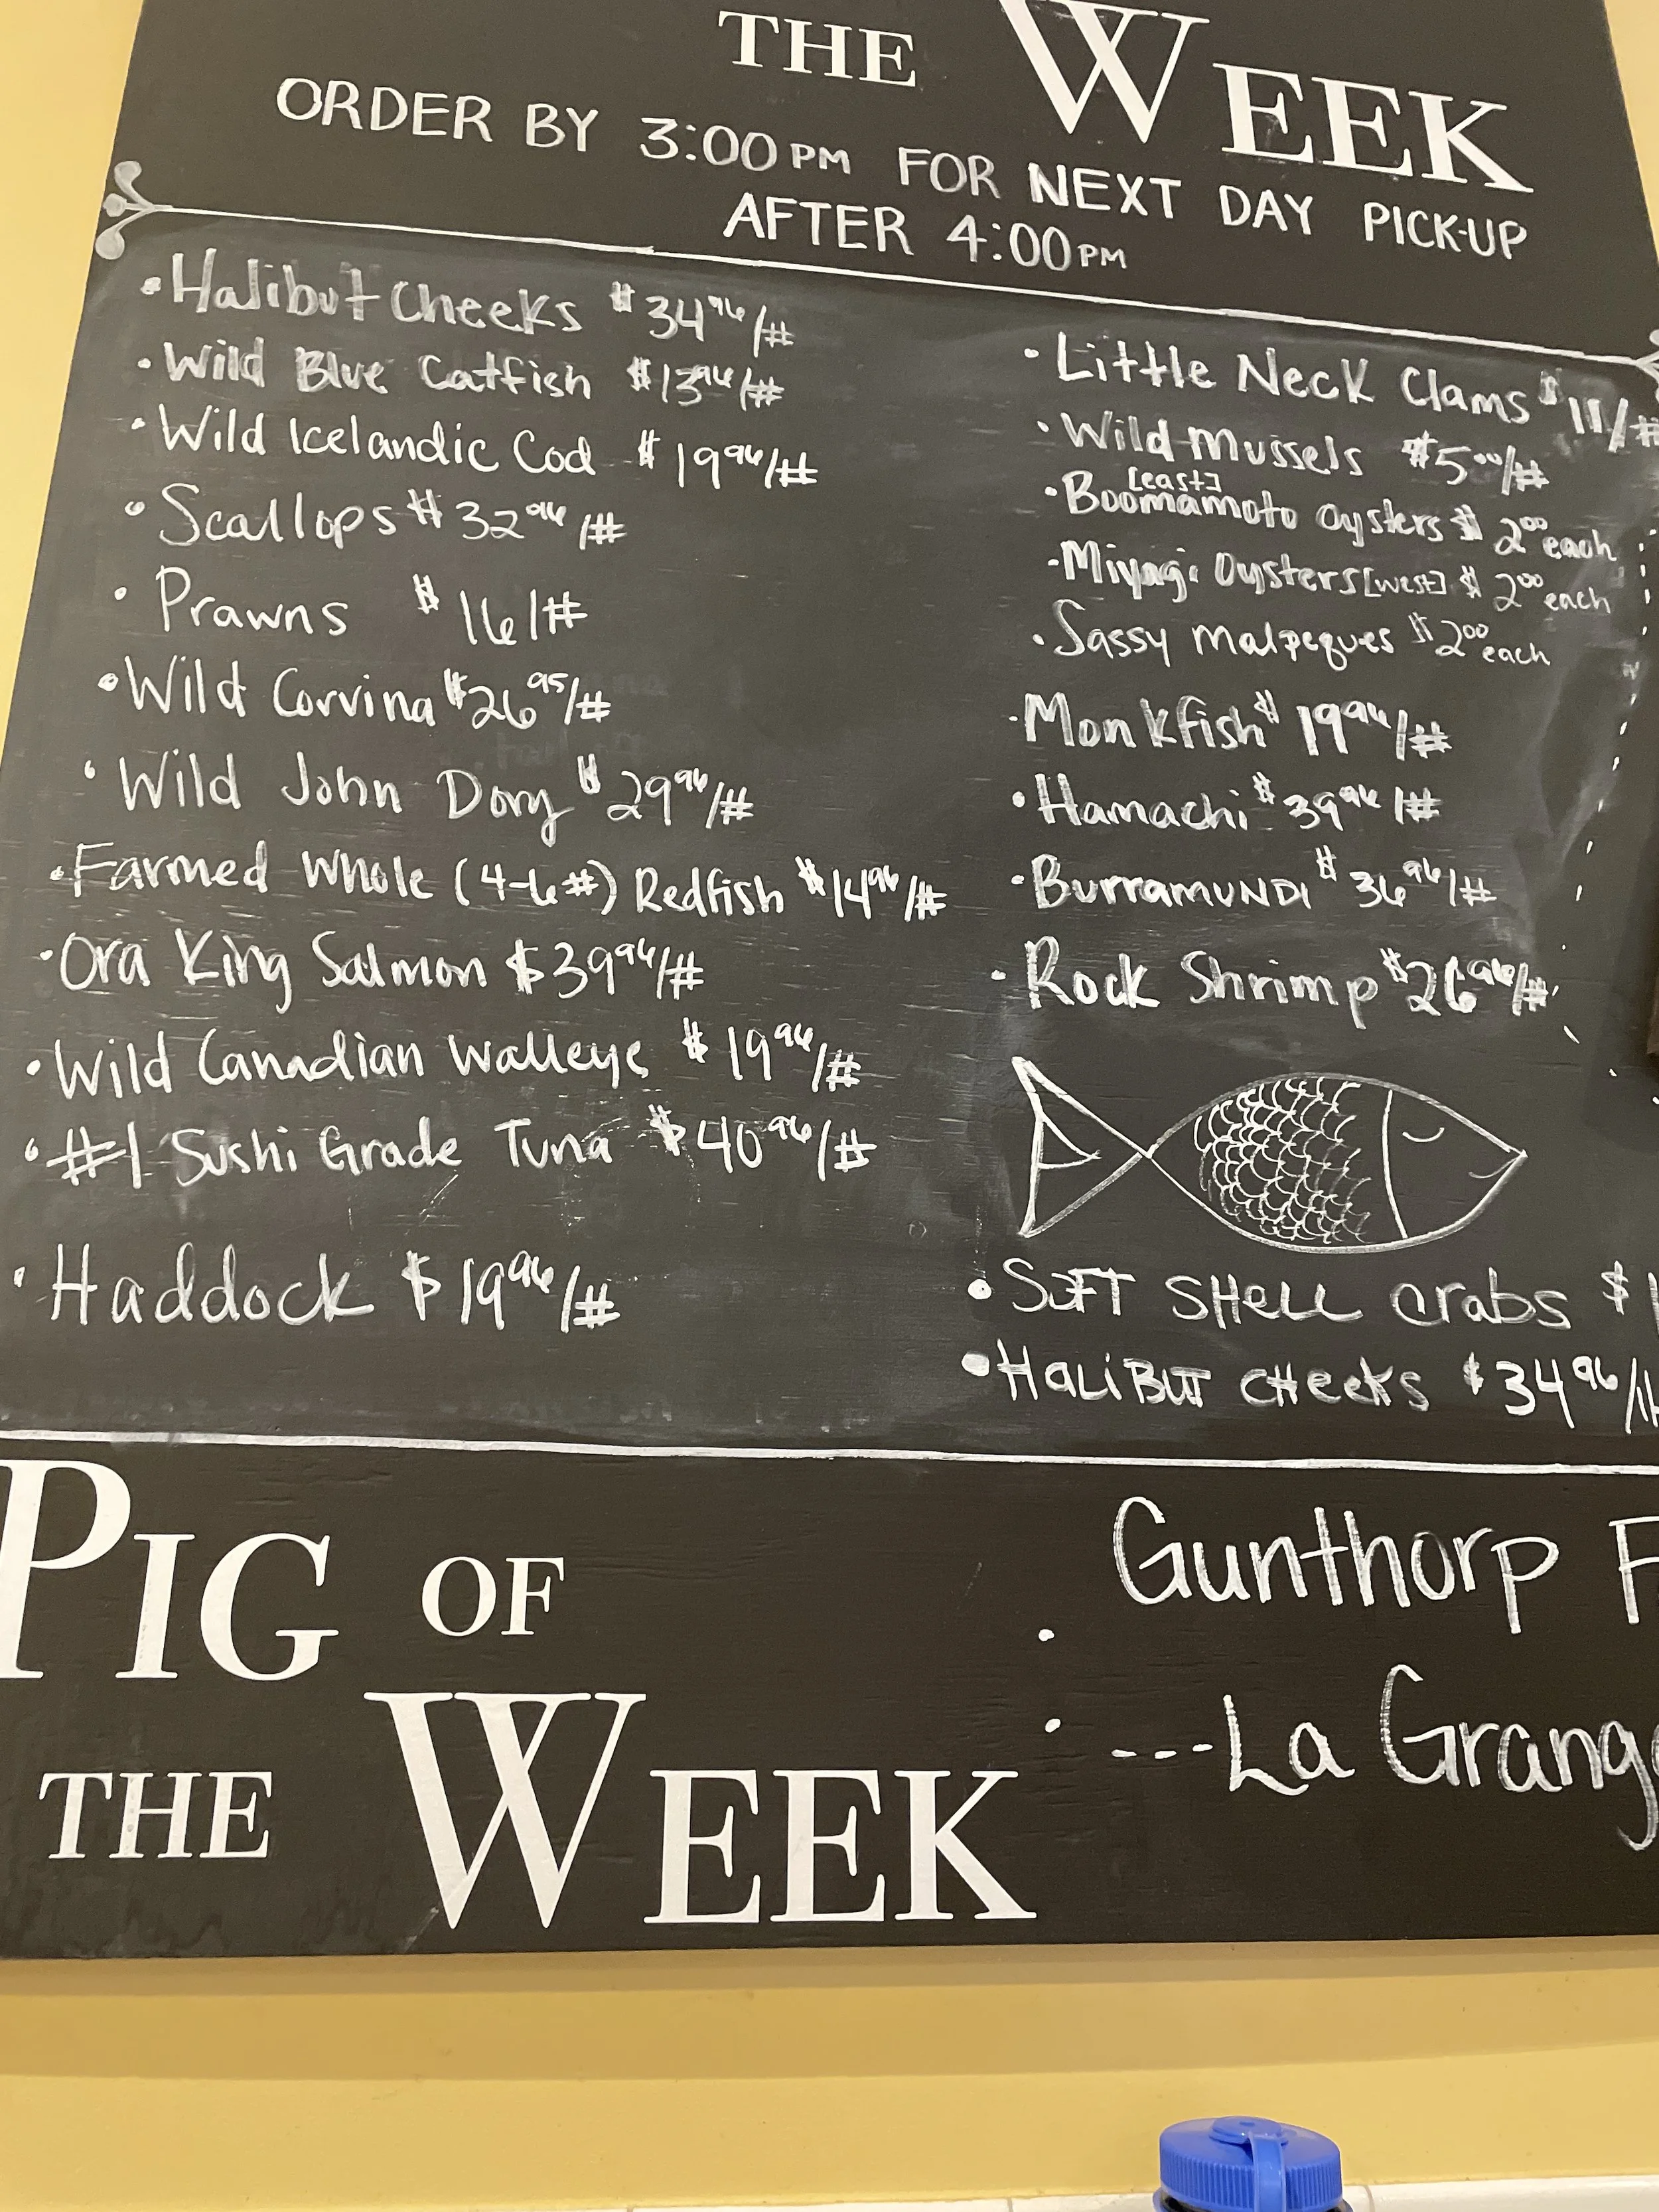 THE WEEK
ORDER BY 3:00 PM FOR NEXT DAY PICK-UP
AFTER 4:00 PM
• Halibut Cheeks $34 96/#
• Wild Blue Catfish $13 96/#
• Wild Icelandic Cod $19 96/#
• Scallops $32 96/#
• Prawns $16/#
• Wild Corvina $26 95/#
• Wild John Dory $29 96/#
• Farmed Whole (4-6#) Redfish $14 96/#
• Ora King Salmon $39 96/#
• Wild Canadian Walleye $19 96/#
• #1 Sushi Grade Tuna $40 96/#
• Haddock $19 96/#
• Little Neck Clams $11/#
• Wild Mussels $5 00/#
[east]
• Boomamoto Oysters $2 00 each
• Miyagi Oysters [west] $2 00 each
• Sassy Malpeques $2 00 each
• Monkfish $19 96/#
• Hamachi $39 96/#
• BurraMUNDI $36 96/#
• Rock Shrimp $26 96/#
• SOFT SHELL crabs $
• HALIBUT CHEEKS $34 96/#
PIG OF
THE WEEK
• Gunthorp F
• ---La Grang